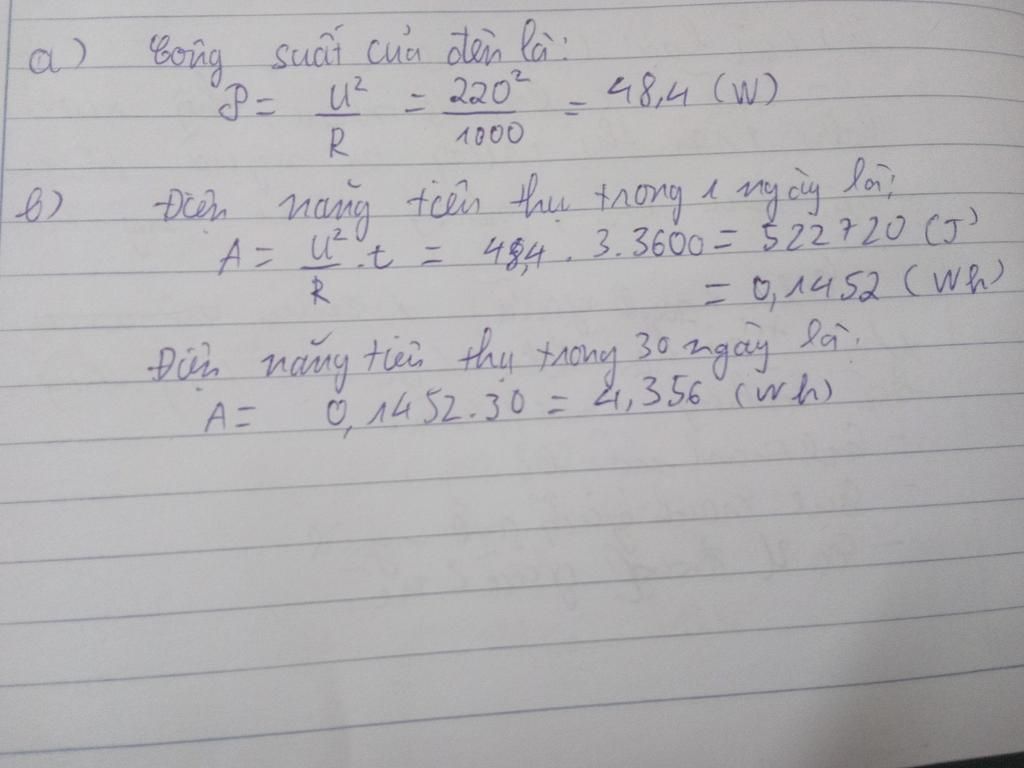 a) Công suất của đèn là:
P = U²/R = 220²/1000 = 48,4 (W)
b) Điện năng tiêu thụ trong 1 ngày là:
A = U²/R .t = 48,4 . 3.3600 = 522720 (J)
= 0,1452 (Wh)
Điện năng tiêu thụ trong 30 ngày là:
A = 0,1452.30 = 4,356 (Wh)